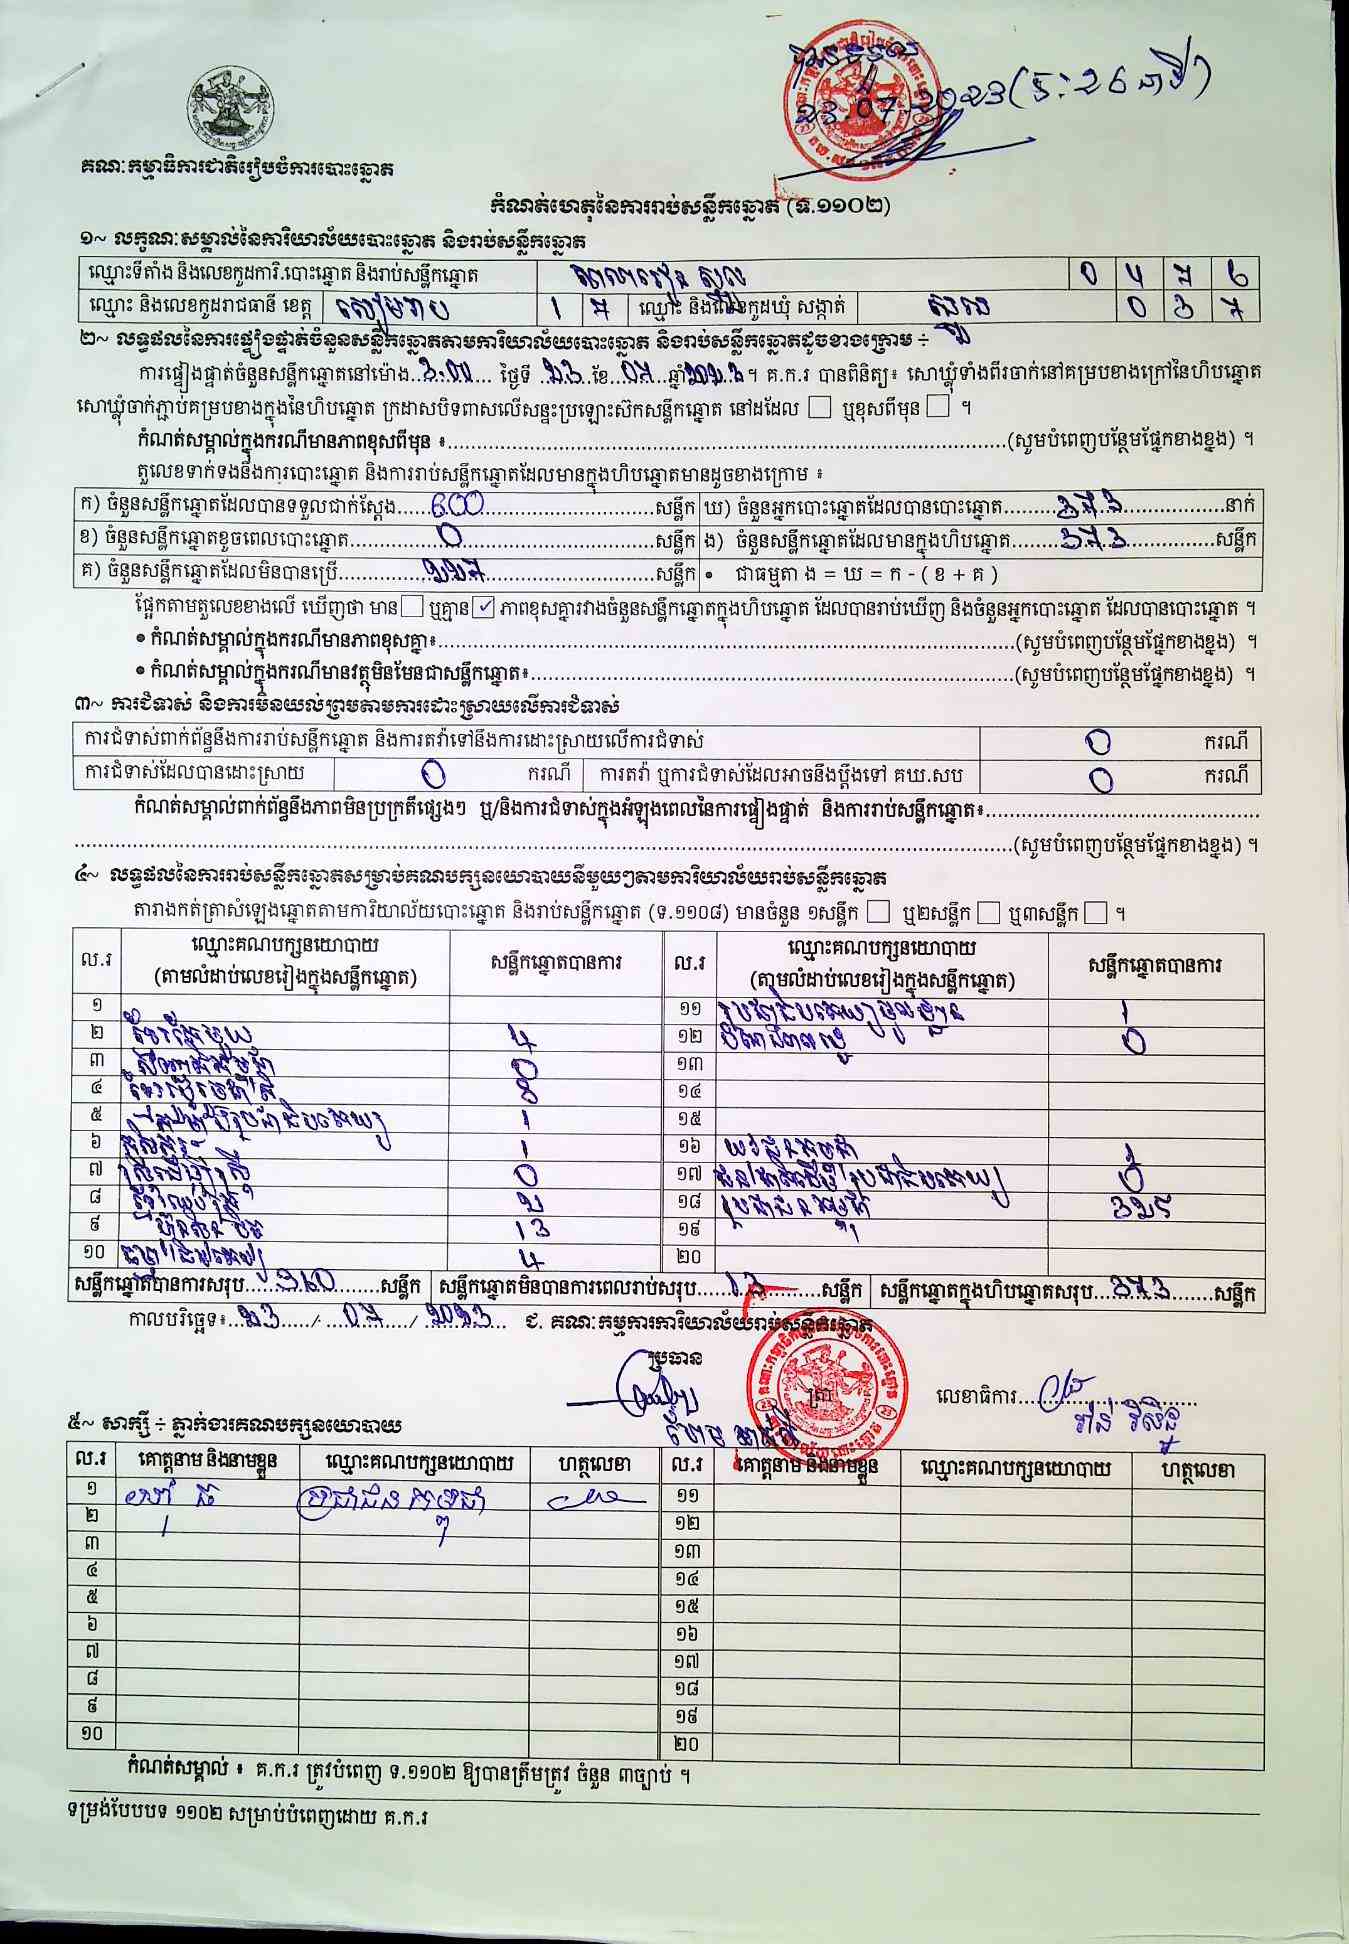 23.07.2023 (5:26 នាទី)
គណៈកម្មាធិការជាតិរៀបចំការបោះឆ្នោត
កំណត់ហេតុនៃការរាប់សន្លឹកឆ្នោត (ទ.១១០២)
១~ លក្ខណៈសម្គាល់នៃការិយាល័យបោះឆ្នោត និងរាប់សន្លឹកឆ្នោត
ឈ្មោះទីតាំង និងលេខកូដការិ.បោះឆ្នោត និងរាប់សន្លឹកឆ្នោត 0 4 7 6
ឈ្មោះ និងលេខកូដរាជធានី ខេត្ត សៀមរាប 1 7 ឈ្មោះ និងលេខកូដឃុំ សង្កាត់ ស្លែង 0 3 7
២~ លទ្ធផលនៃការផ្ទៀងផ្ទាត់ចំនួនសន្លឹកឆ្នោតតាមការិយាល័យបោះឆ្នោត និងរាប់សន្លឹកឆ្នោតដូចខាងក្រោម ÷
ការផ្ទៀងផ្ទាត់ចំនួនសន្លឹកឆ្នោតនៅម៉ោង 3:00 ថ្ងៃទី 23 ខែ 07 ឆ្នាំ 2023 ។ គ.ក.រ បានពិនិត្យ៖ សោឃ្លុំទាំងពីរចាក់នៅគម្របខាងក្រៅនៃហិបឆ្នោត
សោឃ្លុំចាក់ភ្ជាប់គម្របខាងក្នុងនៃហិបឆ្នោត ក្រដាសបិទពាសលើសន្ទះប្រឡោះស៊កសន្លឹកឆ្នោត នៅដដែល ☐ ឬខុសពីមុន ☐ ។
កំណត់សម្គាល់ក្នុងករណីមានភាពខុសពីមុន ៖......(សូមបំពេញបន្ថែមផ្នែកខាងខ្នង) ។
តួលេខទាក់ទងនឹងការបោះឆ្នោត និងការរាប់សន្លឹកឆ្នោតដែលមានក្នុងហិបឆ្នោតមានដូចខាងក្រោម ៖
ក) ចំនួនសន្លឹកឆ្នោតដែលបានទទួលជាក់ស្តែង 600 សន្លឹក ឃ) ចំនួនអ្នកបោះឆ្នោតដែលបានបោះឆ្នោត 373 នាក់
ខ) ចំនួនសន្លឹកឆ្នោតខូចពេលបោះឆ្នោត 0 សន្លឹក ង) ចំនួនសន្លឹកឆ្នោតដែលមានក្នុងហិបឆ្នោត 373 សន្លឹក
គ) ចំនួនសន្លឹកឆ្នោតដែលមិនបានប្រើ 227 សន្លឹក • ជាធម្មតា ង = ឃ = ក - ( ខ + គ )
ផ្អែកតាមតួលេខខាងលើ ឃើញថា មាន ☐ ឬគ្មាន ☑ ភាពខុសគ្នារវាងចំនួនសន្លឹកឆ្នោតក្នុងហិបឆ្នោត ដែលបានរាប់ឃើញ និងចំនួនអ្នកបោះឆ្នោត ដែលបានបោះឆ្នោត ។
• កំណត់សម្គាល់ក្នុងករណីមានភាពខុសគ្នា៖......(សូមបំពេញបន្ថែមផ្នែកខាងខ្នង) ។
• កំណត់សម្គាល់ក្នុងករណីមានវត្ថុមិនមែនជាសន្លឹកឆ្នោត៖......(សូមបំពេញបន្ថែមផ្នែកខាងខ្នង) ។
៣~ ការជំទាស់ និងការមិនយល់ព្រមតាមការដោះស្រាយលើការជំទាស់
ការជំទាស់ពាក់ព័ន្ធនឹងការរាប់សន្លឹកឆ្នោត និងការតវ៉ាទៅនឹងការដោះស្រាយលើការជំទាស់ 0 ករណី
ការជំទាស់ដែលបានដោះស្រាយ 0 ករណី ការតវ៉ា ឬការជំទាស់ដែលអាចនឹងប្តឹងទៅ គឃ.សប 0 ករណី
កំណត់សម្គាល់ពាក់ព័ន្ធនឹងភាពមិនប្រក្រតីផ្សេងៗ ឬ/និងការជំទាស់ក្នុងអំឡុងពេលនៃការផ្ទៀងផ្ទាត់ និងការរាប់សន្លឹកឆ្នោត៖......
......(សូមបំពេញបន្ថែមផ្នែកខាងខ្នង) ។
៤~ លទ្ធផលនៃការរាប់សន្លឹកឆ្នោតសម្រាប់គណបក្សនយោបាយនីមួយៗតាមការិយាល័យរាប់សន្លឹកឆ្នោត
តារាងកត់ត្រាសំឡេងឆ្នោតតាមការិយាល័យបោះឆ្នោត និងរាប់សន្លឹកឆ្នោត (ទ.១១០៨) មានចំនួន ១សន្លឹក ☐ ឬ២សន្លឹក ☐ ឬ៣សន្លឹក ☐ ។
ល.រ ឈ្មោះគណបក្សនយោបាយ (តាមលំដាប់លេខរៀងក្នុងសន្លឹកឆ្នោត) សន្លឹកឆ្នោតបានការ ល.រ ឈ្មោះគណបក្សនយោបាយ (តាមលំដាប់លេខរៀងក្នុងសន្លឹកឆ្នោត) សន្លឹកឆ្នោតបានការ
១ ១១ 1
២ 4 ១២ 0
៣ 0 ១៣
៤ 8 ១៤
៥ 1 ១៥
៦ 1 ១៦ 1
៧ 0 ១៧ 0
៨ 2 ១៨ ប្រជាជនកម្ពុជា 325
៩ 13 ១៩
១០ 4 ២០
សន្លឹកឆ្នោតបានការសរុប 360 សន្លឹក សន្លឹកឆ្នោតមិនបានការពេលរាប់សរុប 13 សន្លឹក សន្លឹកឆ្នោតក្នុងហិបឆ្នោតសរុប 373 សន្លឹក
កាលបរិច្ឆេទ៖ 23 / 07 / 2023 ជ. គណៈកម្មការការិយាល័យរាប់សន្លឹកឆ្នោត
ប្រធាន ត្រា លេខាធិការ
៥~ សាក្សី ÷ ភ្នាក់ងារគណបក្សនយោបាយ
ល.រ គោត្តនាម និងនាមខ្លួន ឈ្មោះគណបក្សនយោបាយ ហត្ថលេខា ល.រ គោត្តនាម និងនាមខ្លួន ឈ្មោះគណបក្សនយោបាយ ហត្ថលេខា
១ ប្រជាជនកម្ពុជា ១១
២ ១២
៣ ១៣
៤ ១៤
៥ ១៥
៦ ១៦
៧ ១៧
៨ ១៨
៩ ១៩
១០ ២០
កំណត់សម្គាល់ ៖ គ.ក.រ ត្រូវបំពេញ ទ.១១០២ ឱ្យបានត្រឹមត្រូវ ចំនួន ៣ច្បាប់ ។
ទម្រង់បែបបទ ១១០២ សម្រាប់បំពេញដោយ គ.ក.រ